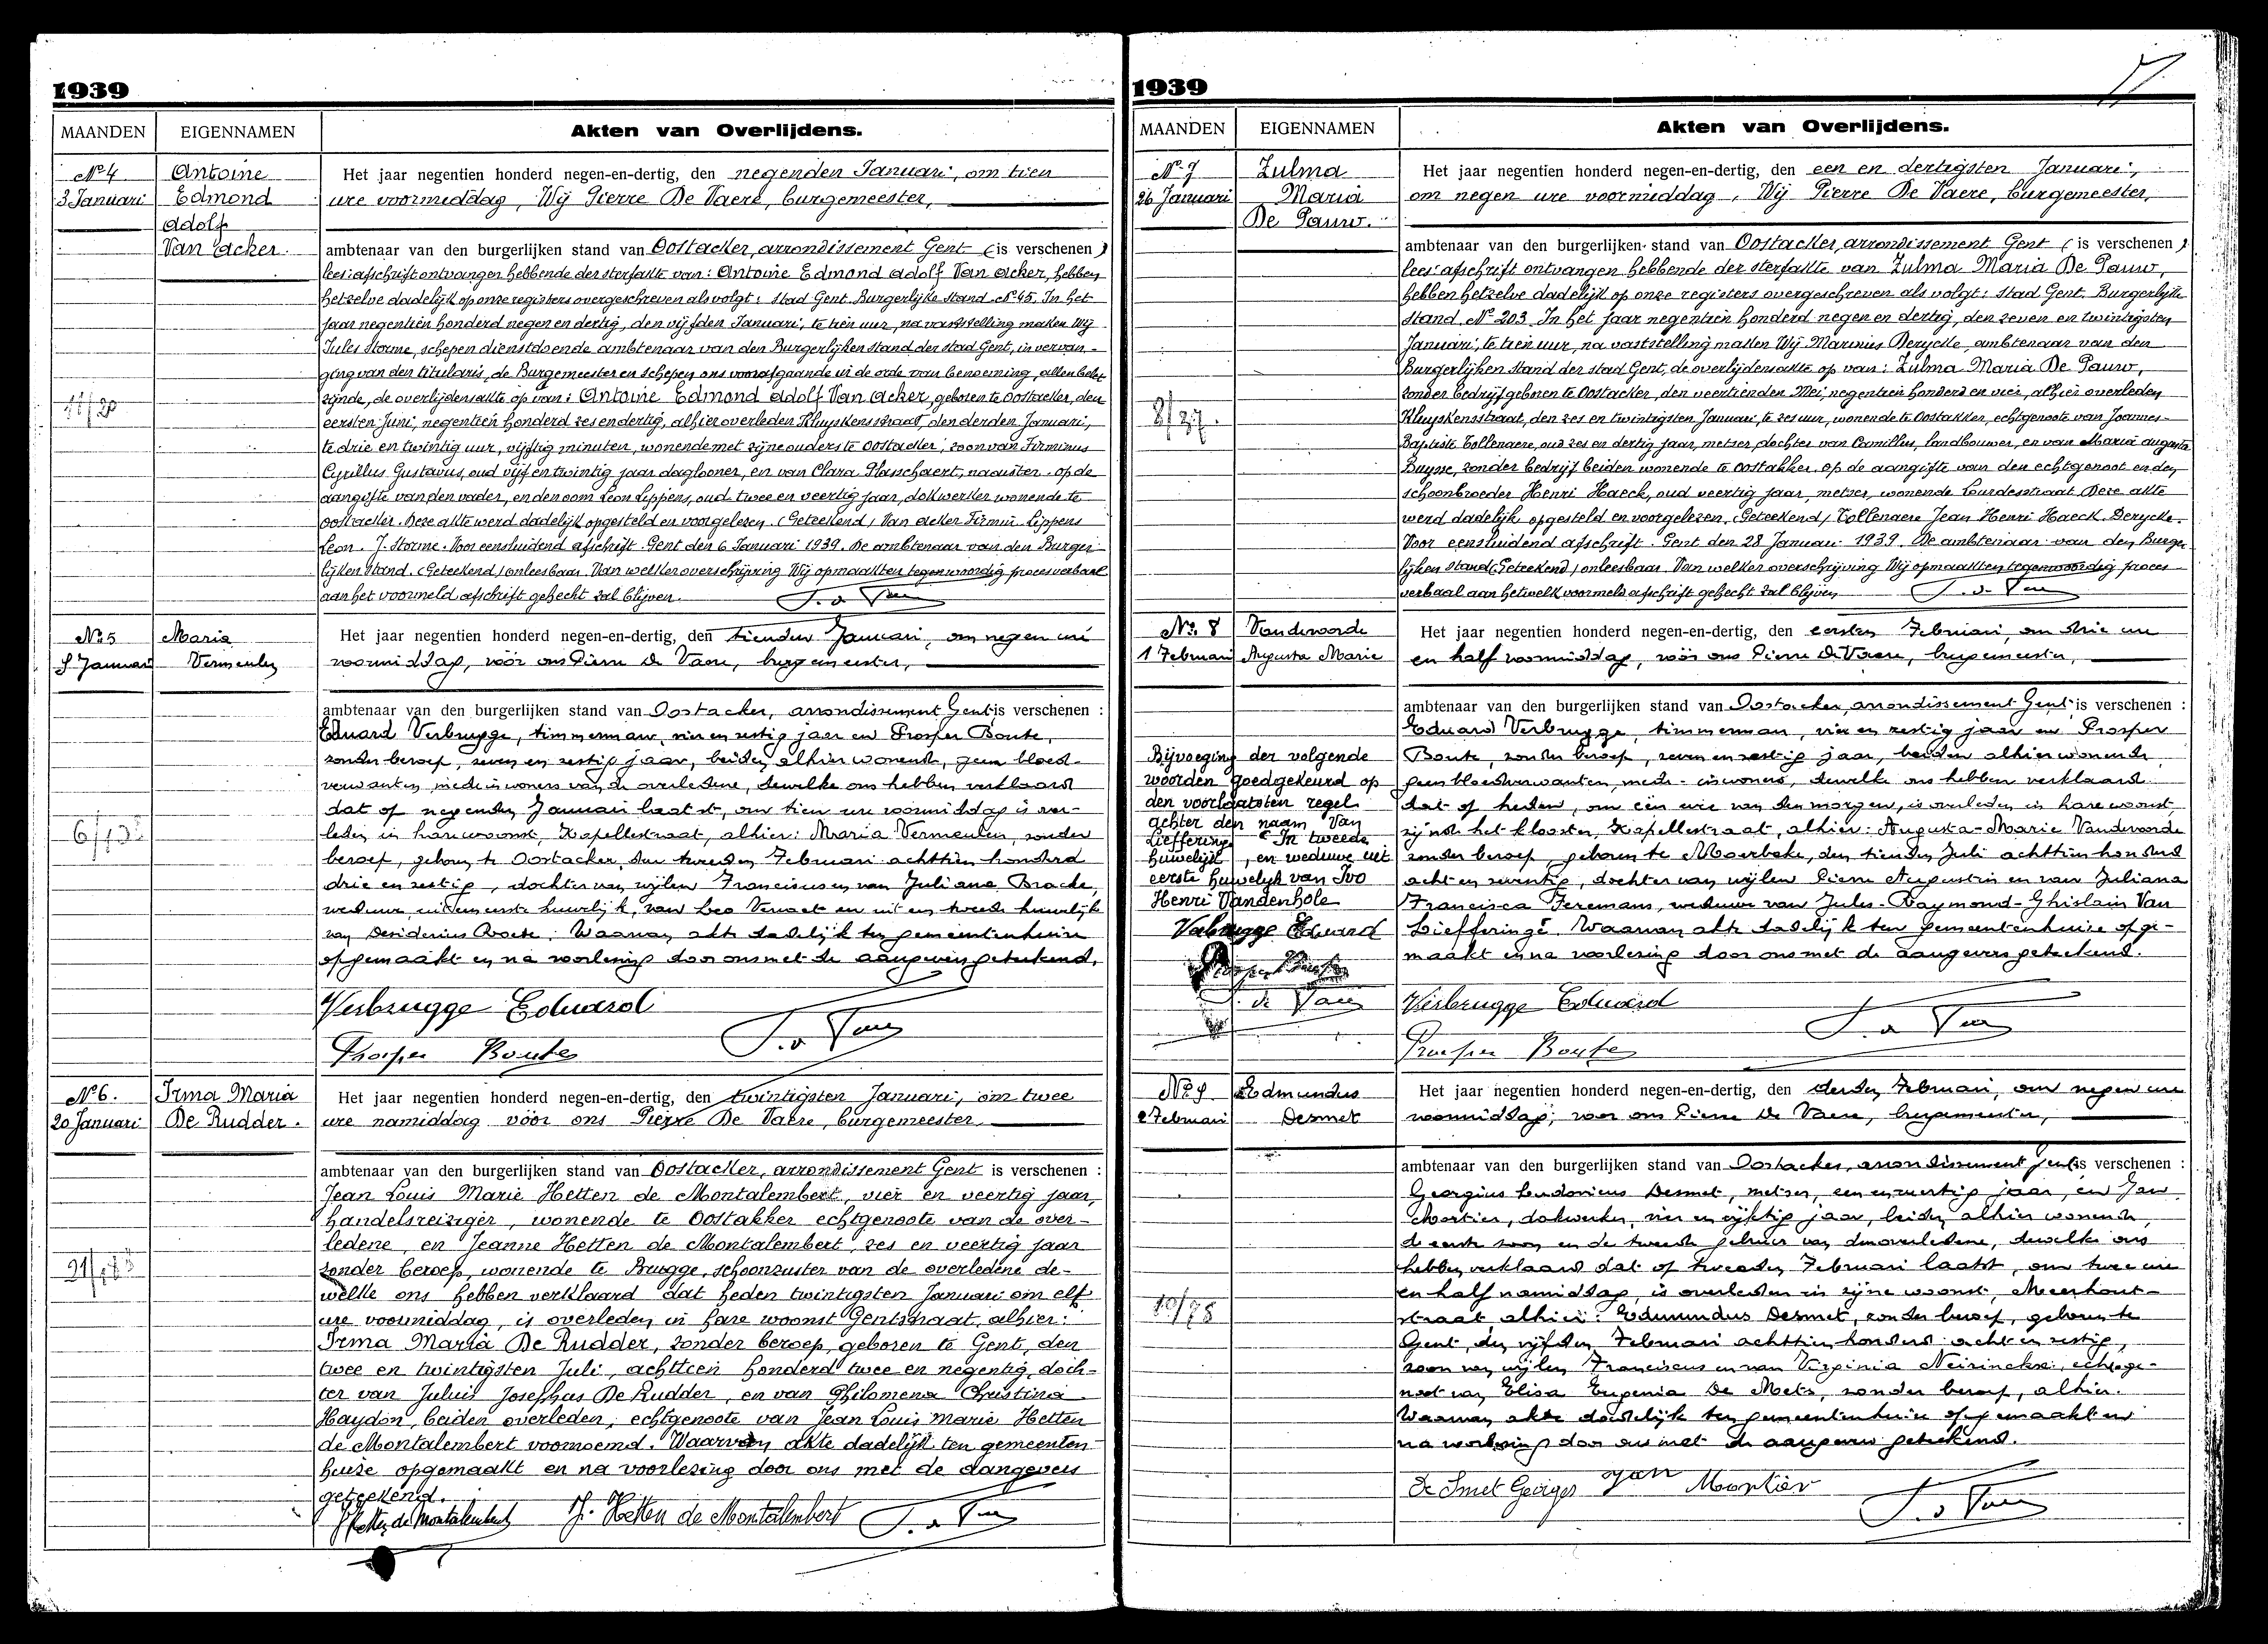 1939
MAANDEN EIGENNAMEN Akten van Overlijdens.
No 4
3 Januari
Antoine
Edmond
Adolf
Van Acker.
11/20
Het jaar negentien honderd negen-en-dertig, den negenden Januari, om tien
ure voormiddag, Wij Pierre De Vaere, burgemeester,
ambtenaar van den burgerlijken stand van Oostacker, arrondissement Gent (is verschenen)
lees: afschrift ontvangen hebbende der sterfakte van: Antoine Edmond Adolf Van Acker, hebben
hetzelve dadelijk op onze registers overgeschreven als volgt: Stad Gent. Burgerlijke Stand. No 45. In het
jaar negentien honderd negen en dertig, den vijfden Januari, te tien uur, na vaststelling maken Wij
Jules Storme, schepen dienstdoende ambtenaar van den Burgerlijken Stand der stad Gent, in vervan-
ging van den titularis, de Burgemeester en schepen ons voorafgaande in de orde van benoeming, allen belet
zijnde, de overlijdensakte op van: Antoine Edmond Adolf Van Acker, geboren te Oostacker, den
eersten Juni, negentien honderd zes en dertig, alhier overleden Kluyskensstraat, den derden Januari,
te drie en twintig uur, vijftig minuten, wonende met zijne ouders te Oostacker, zoon van Firminus
Cyrillus Gustavus, oud vijf en twintig jaar daglooner, en van Clara Plasschaert, naaister. op de
aangifte van den vader, en den oom Leon Lippens, oud twee en veertig jaar, dokwerker wonende te
Oostacker. Deze akte werd dadelijk opgesteld en voorgelezen. (Geteekend) Van Acker Firmin. Lippens
Leon. J. Storme. Voor eensluidend afschrift. Gent den 6 Januari 1939. De ambtenaar van den Burger-
lijken Stand. (Geteekend) onleesbaar. Van welker overschrijving Wij opmaakten tegenwoordig proces verbaal
aan het voormeld afschrift gehecht zal blijven.
No 5
9 Januari
Maria
Vermeulen
6/13
Het jaar negentien honderd negen-en-dertig, den tienden Januari, om negen ure
voormiddag, vóór ons Pierre De Vaere, burgemeester,
ambtenaar van den burgerlijken stand van Oostacker, arrondissement Gent is verschenen :
Eduard Verbrugge, timmerman, vier en zestig jaar en Prosper Boute,
zonder beroep, zeven en zestig jaar, beiden alhier wonende, geen bloed-
verwanten, mede inwoners van de overledene, dewelke ons hebben verklaard
dat op negenden Januari laatst, om tien ure voormiddag is over-
leden in hare woonst, Kapellestraat, alhier: Maria Vermeulen, zonder
beroep, geboren te Oostacker, den tweeden Februari achttien honderd
drie en zestig, dochter van wijlen Franciscus en van Juliana Bracke,
weduwe, uit eerste huwelijk, van Leo Vervaet en uit een tweede huwelijk
van Desiderius Baete. Waarvan akte dadelijk ten gemeentenhuize
opgemaakt en na voorlezing door ons met de aangevers geteekend.
Verbrugge Eduard
Prosper Boute
No 6.
20 Januari
Irma Maria
De Rudder.
21/13
Het jaar negentien honderd negen-en-dertig, den twintigsten Januari, om twee
ure namiddag vóór ons Pierre De Vaere, burgemeester
ambtenaar van den burgerlijken stand van Oostacker, arrondissement Gent is verschenen :
Jean Louis Marie Hetten de Montalembert, vier en veertig jaar,
handelsreiziger, wonende te Oostakker echtgenoote van de over-
ledene, en Jeanne Hetten de Montalembert, zes en veertig jaar
zonder beroep, wonende te Brugge, schoonzuster van de overledene de-
welke ons hebben verklaard dat heden twintigsten Januari om elf
ure voormiddag, is overleden in hare woonst Gentstraat, alhier:
Irma Maria De Rudder, zonder beroep, geboren te Gent, den
twee en twintigsten Juli, achttien honderd twee en negentig, doch-
ter van Julius Josephas De Rudder, en van Philomena Christina
Haydon, beiden overleden, echtgenoote van Jean Louis Marie Hetten
de Montalembert voornoemd. Waarvan akte dadelijk ten gemeenten-
huize opgemaakt en na voorlezing door ons met de aangevers
geteekend.
J Hetten de Montalembert J. Hetten de Montalembert
1939
MAANDEN EIGENNAMEN Akten van Overlijdens.
No 7
26 Januari
Zulma
Maria
De Pauw.
8/27.
Het jaar negentien honderd negen-en-dertig, den een en dertigsten Januari,
om negen ure voormiddag, Wij Pierre De Vaere, burgemeester,
ambtenaar van den burgerlijken stand van Oostacker, arrondissement Gent (is verschenen)
lees: afschrift ontvangen hebbende der sterfakte van Zulma Maria De Pauw,
hebben hetzelve dadelijk op onze registers overgeschreven als volgt: Stad Gent. Burgerlijke
Stand. No 203 In het jaar negentien honderd negen en dertig, den zeven en twintigsten
Januari, te tien uur, na vaststelling maken Wij Marinus Derycke, ambtenaar van den
Burgerlijken Stand der stad Gent, de overlijdensakte op van: Zulma Maria De Pauw,
zonder bedrijf geboren te Oostacker, den veertienden Mei, negentien honderd en vier, alhier overleden
Kluyskensstraat, den zes en twintigsten Januari, te zes uur, wonende te Oostakker, echtgenoote van Joannes-
Baptiste Tollenaere, oud zes en dertig jaar, metser, dochter van Camillus, landbouwer, en van Maria Augusta
Buysse, zonder bedrijf beiden wonende te Oostakker. Op de aangifte van den echtgenoot en den
schoonbroeder Henri Haeck, oud veertig jaar, metser, wonende Lourdesstraat. Deze akte
werd dadelijk opgesteld en voorgelezen. (Geteekend) Tollenaere Jean Henri Haeck. Derycke.
Voor eensluidend afschrift. Gent den 28 Januari 1939. De ambtenaar van den Burger-
lijken stand (Geteekend) onleesbaar. Van welker overschrijving Wij opmaakten tegenwoordig proces
verbaal aan hetwelk voormeld afschrift gehecht zal blijven
No. 8
1 Februari
Vandevoorde
Augusta Marie
Bijvoeging der volgende
woorden goedgekeurd op
den voorlaatsten regel
achter den naam Van
Liefferinge "In tweede
huwelijk, en weduwe uit
eerste huwelijk van Ivo
Henri Vandenhole
Verbrugge Eduard
Prosper Boute
P. de Vaere
Het jaar negentien honderd negen-en-dertig, den eersten Februari, om drie ure
en half voormiddag, vóór ons Pierre De Vaere, burgemeester,
ambtenaar van den burgerlijken stand van Oostacker, arrondissement Gent is verschenen :
Eduard Verbrugge, timmerman, vier en zestig jaar en Prosper
Boute, zonder beroep, zeven en zestig jaar, beiden alhier wonende,
geen bloedverwanten, mede-inwoners, dewelke ons hebben verklaard
dat op heden, om één ure van den morgen, is overleden in hare woonst
zijnde het klooster, Kapellestraat, alhier: Augusta-Marie Vandevoorde
zonder beroep, geboren te Moerbeke, den tienden Juli achttien honderd
acht en zeventig, dochter van wijlen Pierre Augustin en van Juliana
Francisca Teremans, weduwe van Jules-Raymond-Ghislain Van
Liefferinge. Waarvan akte dadelijk ten gemeentenhuize opge-
maakt en na voorlezing door ons met de aangevers geteekend.
Verbrugge Eduard
Prosper Boute
No. 9
2 Februari
Edmundus
Desmet
10/78
Het jaar negentien honderd negen-en-dertig, den derden Februari, om negen ure
voormiddag, voor ons Pierre De Vaere, burgemeester,
ambtenaar van den burgerlijken stand van Oostacker, arrondissement Gent is verschenen :
Georgius Ludovicus Desmet, metser, een en veertig jaar, en Jan
Mortier, dokwerker, vier en vijftig jaar, beiden alhier wonende,
de eerste zoon en de tweede gebuur van den overledene, dewelke ons
hebben verklaard dat op tweeden Februari laatst, om twee ure
en half namiddag, is overleden in zijne woonst, Meerhout-
straat, alhier: Edmundus Desmet, zonder beroep, geboren te
Gent, den vijfden Februari achttien honderd acht en zestig,
zoon van wijlen Franciscus en van Virginia Neirinckx, echtge-
noot van Elisa Eugenia De Mets, zonder beroep, alhier.
Waarvan akte dadelijk ten gemeentenhuize opgemaakt en
na voorlezing door ons met de aangevers geteekend.
De Smet Georges Jan Mortier